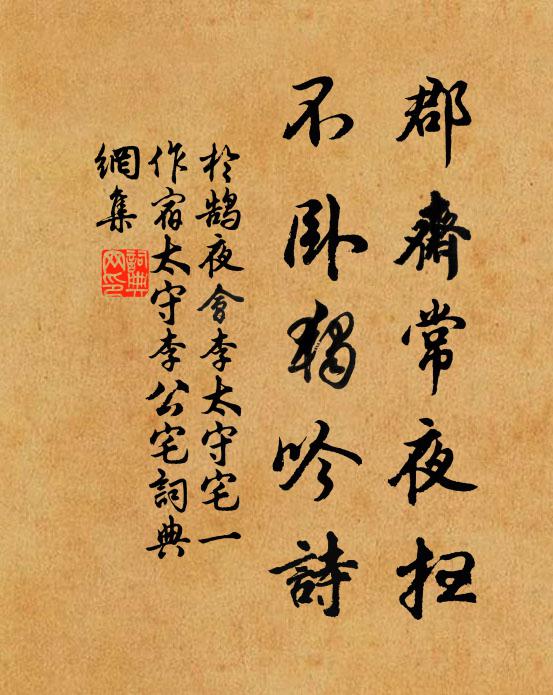 郡齋常夜扫
不卧獨吟詩
於鵠夜會李太守宅一
作宿太守李公宅詞典
網集
詞典
网印